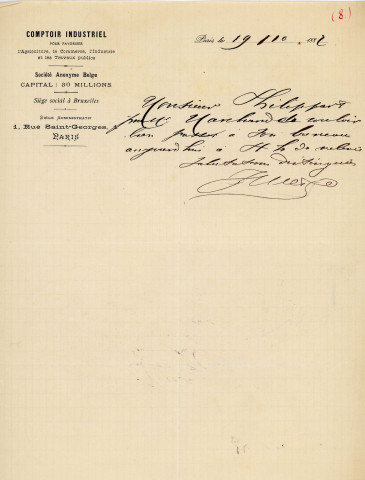 (8)
COMPTOIR INDUSTRIEL
POUR FAVORISER
l'Agriculture, le Commerce, l'Industrie
et les Travaux publics
Société Anonyme Belge
CAPITAL : 30 MILLIONS
Siège social à Bruxelles
SIÈGE ADMINISTRATIF
1, Rue Saint-Georges, 1
PARIS
Paris le 19 188
Monsieur Philippart
prie M Marchand de vouloir
bien passer à son bureau
aujourd'hui à
Salutations distinguées